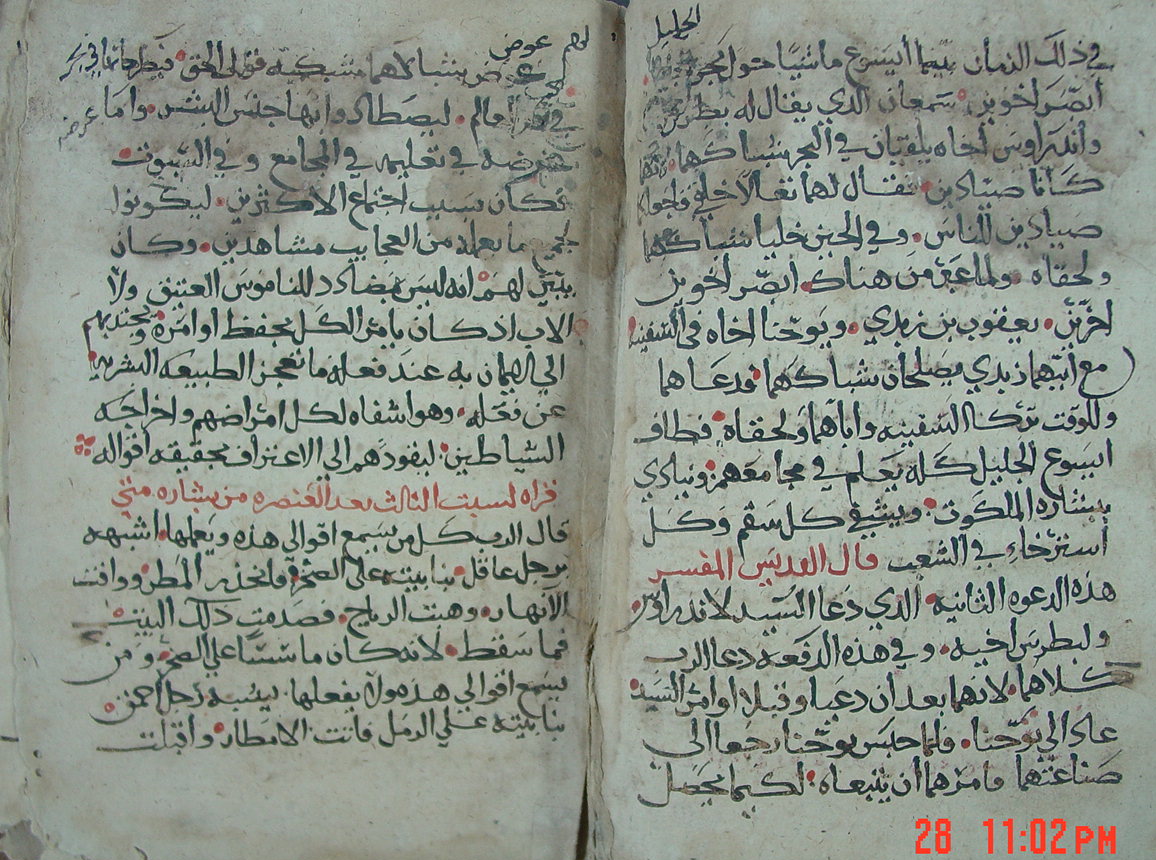 الجليل
في ذلك الزمان بينما ايسوع ماشيا حول بحر
ابصر اخوين سمعان الذي يقال له بطرس
واندراوس اخاه يلقيان في البحر شباكهما لانهما
كانا صيادين فقال لهما تعالا خلفي فاجعلكما
صيادين للناس وفي الحين خليا شباكهما
ولحقاه ولما عبر من هناك ابصر اخوين
اخرين يعقوب بن زبدي ويوحنا اخاه في السفينه
مع ابيهما زبدي يصلحان شباكهما فدعاهما
وللوقت تركا السفينه واباهما ولحقاه فطاف
ايسوع الجليل كله يعلم في مجامعهم وينادي
ببشارة الملكوت ويشفي كل سقم وكل
استرخاء في الشعب قال القديس المفسر
هذه الدعوه الثانيه الذي دعا السيد لاندراوس
ولبطرس اخيه وفي هذه الدفعه دعا الرب
كلاهما لانهما بعد ان دعيا وقبلا اوامر السيد
عادا الي يوحنا فلما حبس يوحنا رجعا الي
صناعتهما فامرهما ان يتبعاه لكيما يحصل
لهم عوض
عوض شباكهما شبكة قول الحق فيطرحانها في بحر
العالم ليصطادوا بها جنس البشر واما
غرضه في تعليمه في المجامع وفي السبوت
فكان بسبب اجتماع الاكثرين ليكونوا
لجميع ما يعمله من العجايب مشاهدين وكان
يبين لهم انه ليس بمضادد للناموس العتيق ولا
الاب اذ كان يامر الكل بحفظ اوامره ويجذبهم
الي الايمان به عند فعله ما تعجز الطبيعه البشريه
عن فعله وهو اشفاه لكل امراضهم واخراجه
الشياطين ليقودهم الي الاعتراف بحقيقه اقواله
قراه لسبت الثالث بعد العنصره من بشاره متي
قال الرب كل من يسمع اقوالي هذه ويعملها اشبهه
برجل عاقل بنا بيته علي الصخره فانحدر المطر ووافت
الانهار وهبت الرياح فصدمت ذلك البيت
فما سقط لانه كان ماسسا علي الصخره ومن
يسمع اقوالي هذه ولا يفعلها يشبه رجل احمق
بنا بيته علي الرمل فاتت الامطار واقبلت
28 11:02 PM